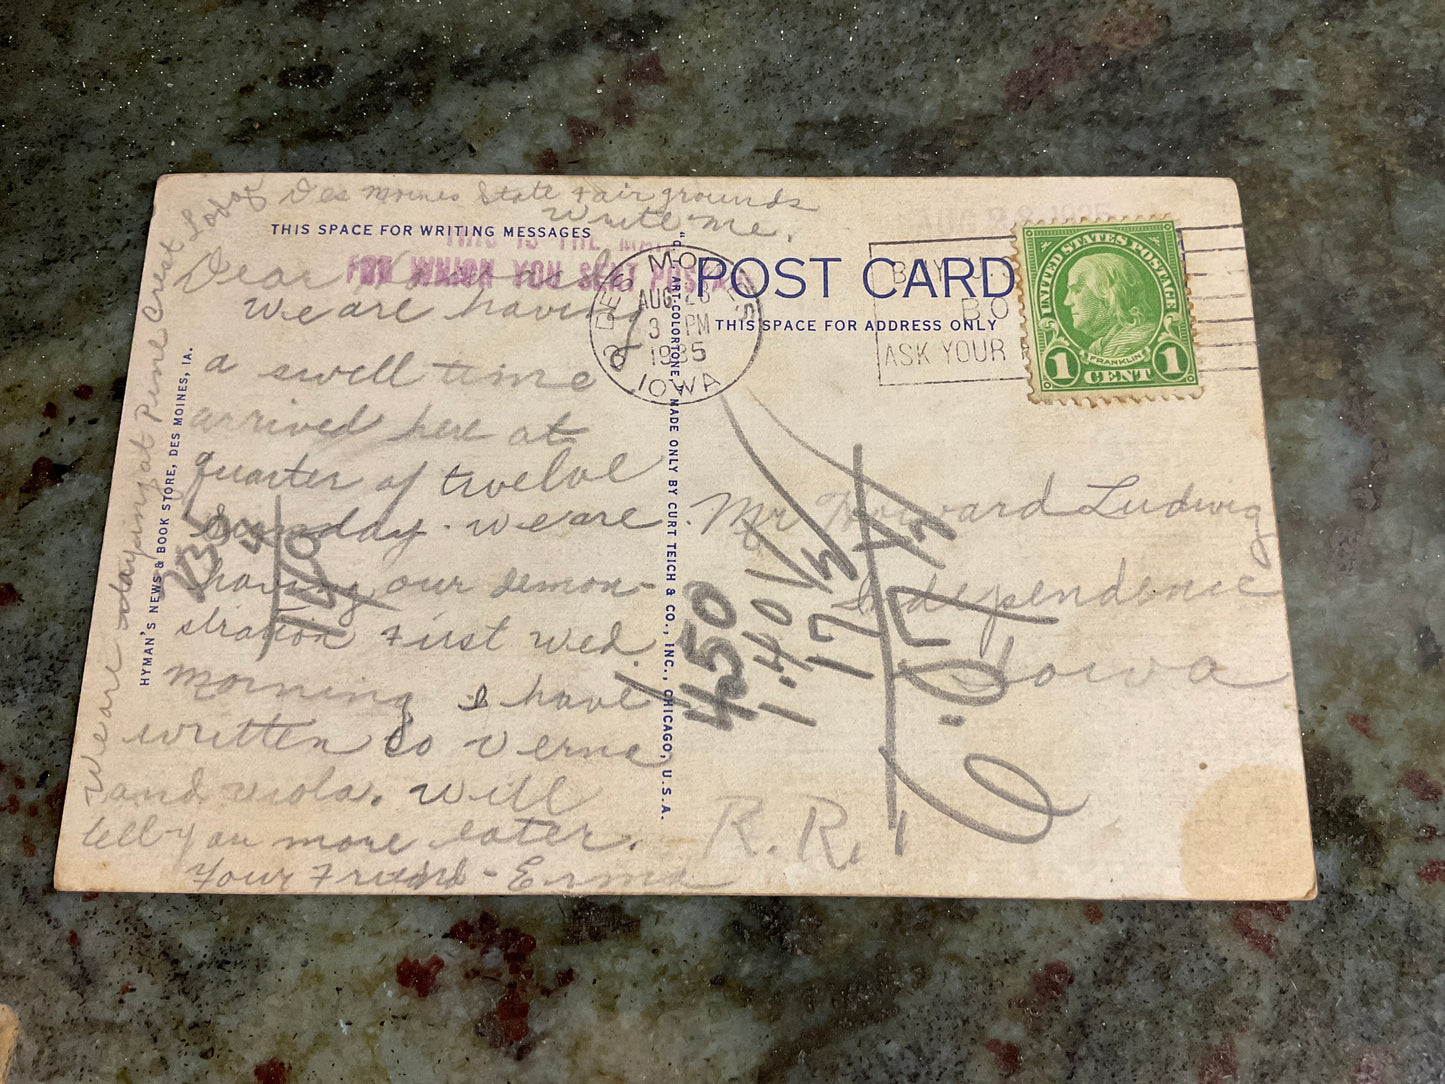 Des Moines State Fair grounds
Write me.
THIS SPACE FOR WRITING MESSAGES
THIS IS THE MAIL
FOR WHICH YOU SENT POSTAGE
Dear
We are having
a swell time
arrived here at
quarter of twelve
Sunday. We are
having our demon-
stration First Wed.
morning I have
written to Verne
and Viola. Will
tell you more later.
Your Friend - Erma
We are staying at Pine Crest Lodge
HYMAN'S NEWS & BOOK STORE, DES MOINES, IA.
"C.T. ART-COLORTONE" MADE ONLY BY CURT TEICH & CO., INC., CHICAGO, U.S.A.
DES MOINES
AUG 26
3 PM
1935
IOWA
AUG 28 1935
POST CARD
THIS SPACE FOR ADDRESS ONLY
BUY
BO
ASK YOUR
UNITED STATES POSTAGE
FRANKLIN
1 CENT 1
Mr Howard Ludwig
Independence
Iowa
R.R. 1
450
1.40
17
140